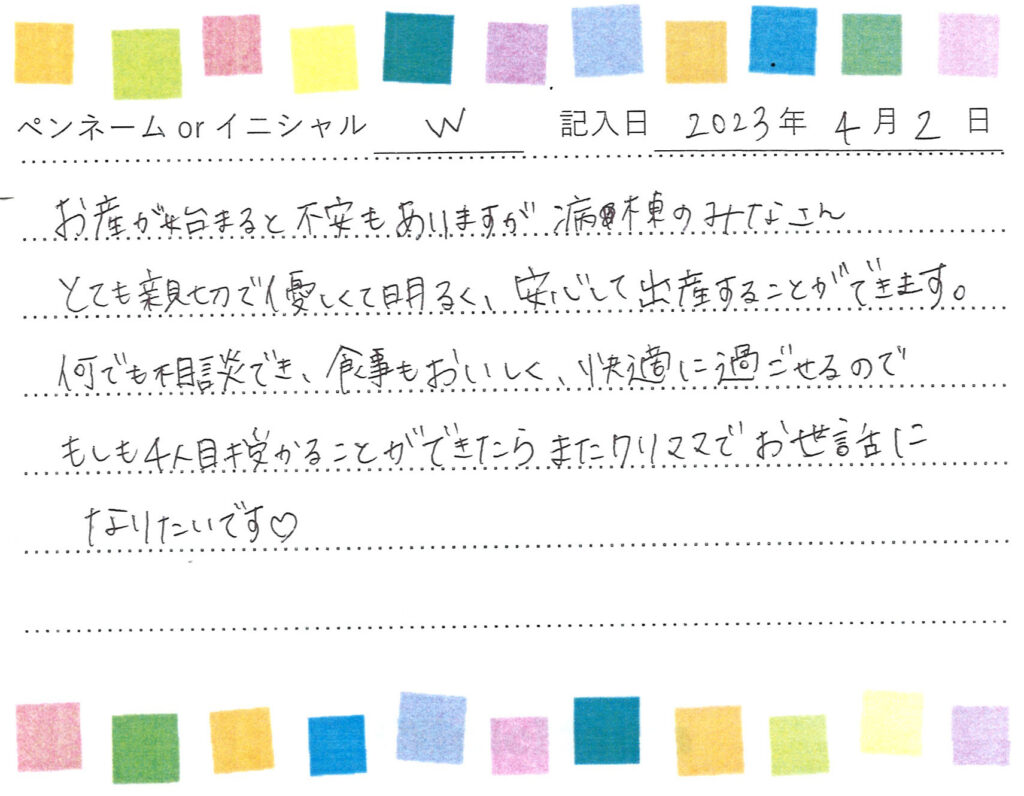 ペンネーム or イニシャル W 記入日 2023年 4月 2日
お産が始まると不安もありますが 病棟のみなさん
とても親切で優しくて明るく、安心して出産することができます。
何でも相談でき、食事もおいしく、快適に過ごせるので
もしも4人目授かることができたら またクリママで お世話に
なりたいです♡